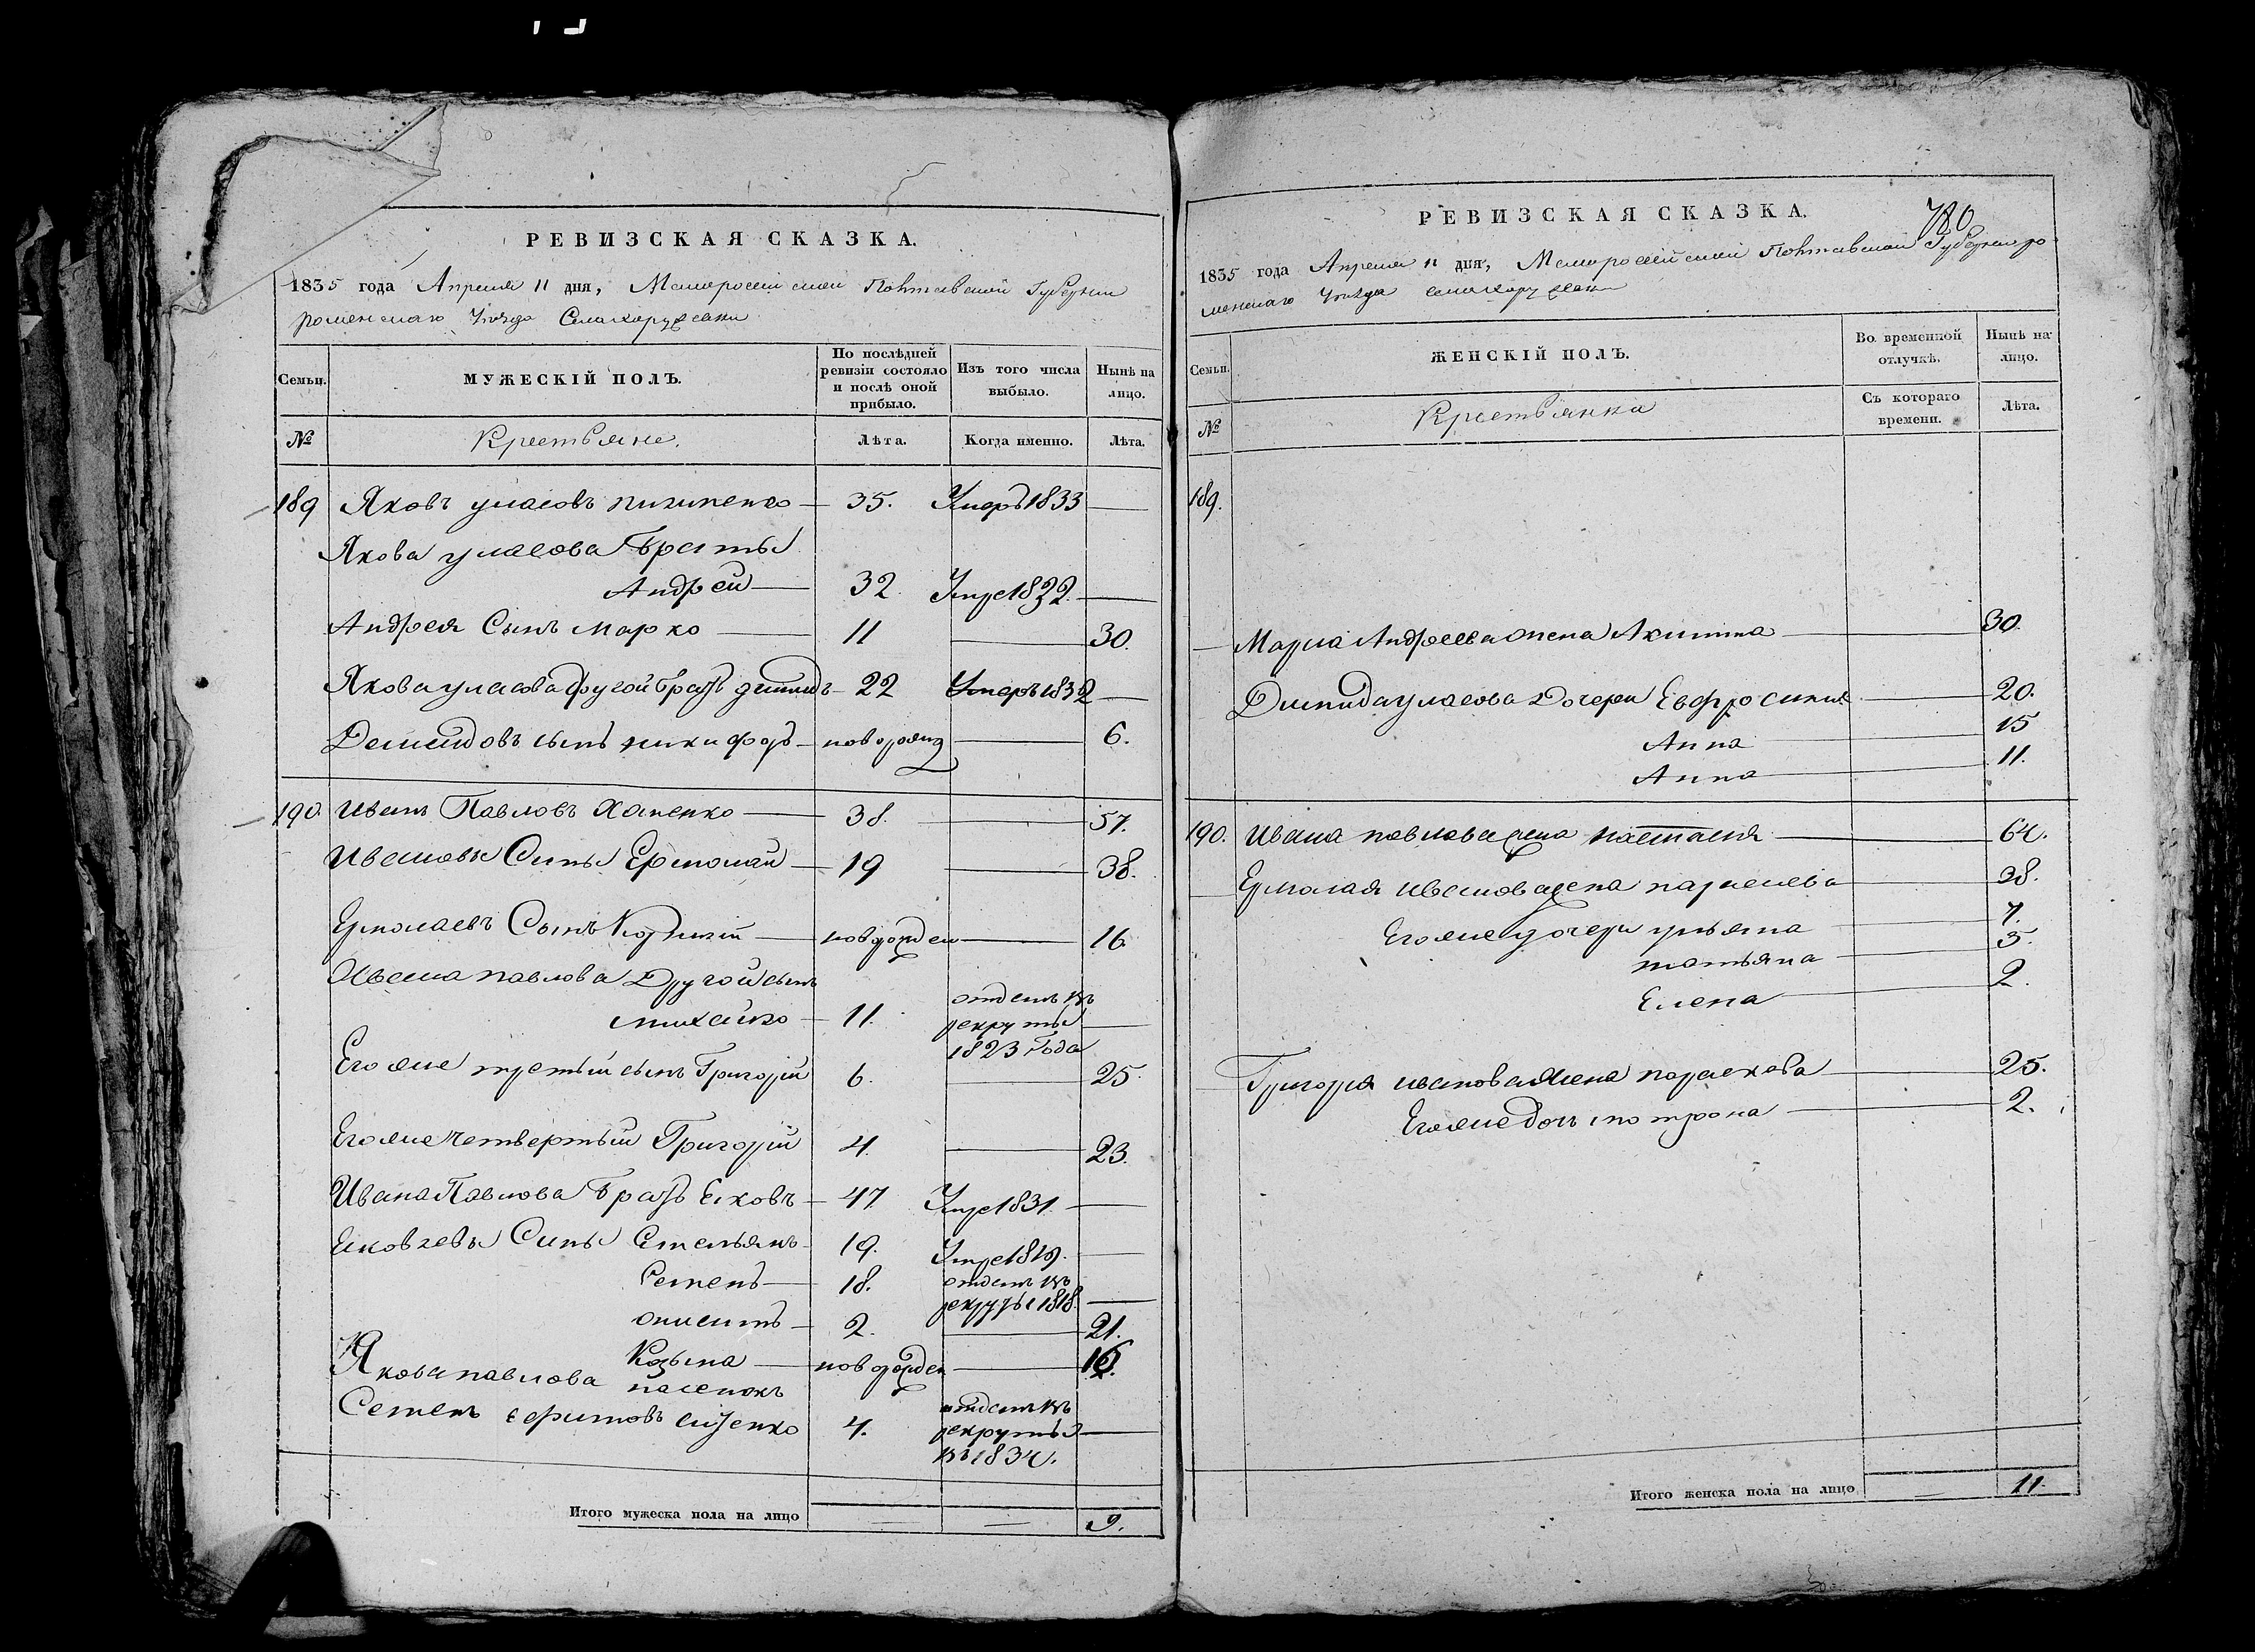 РЕВИЗСКАЯ СКАЗКА.
1835 года Апреля 11 дня, Малоросейской Полтавской Губернии
роменского Уезда Села
Семьи.
МУЖЕСКІЙ ПОЛЪ.
По послѣдней ревизіи состояло и послѣ оной прибыло.
Изъ того числа выбыло.
Нынѣ на лицо.
№
Крестьяне.
Лѣта.
Когда именно.
Лѣта.
189 Яковъ уласовъ 35. Умеръ 1833
Якова уласова Браты
Андрей 32. Умре 1832
Андрея Сынъ Марко 11 30.
Якова уласова другой братъ 22 Умеръ 1832
Демидовъ сынъ никифоръ 6.
190. Иванъ Павловъ Хапенко 38. 57.
Ивановы Сины Ермолай 19 38.
Ермолаевъ Сынъ новорожден 16
Ивана павлова Другой сынъ
михайло 11. отданъ въ
рекруты
1823 Года
Его же третый сынъ Григорій 6. 25.
Его же четвертый Григорій 4. 23.
Ивана Павлова Братъ Яковъ 47 Умре 1831.
Яковлевы Сины Емельянъ 19. Умре 1819.
Семенъ 18. отданъ въ
рекруты 1818.
2. 21.
Козьма новорожден 16.
Якова павлова пасенокъ
Семенъ 4. отданъ въ
рекруты
въ 1834.
Итого мужеска пола на лицо 9.
780
РЕВИЗСКАЯ СКАЗКА.
1835 года Апреля 11 дня, Малоросейской Полтавской Губернии ро
менского Уезда села
Семьи.
ЖЕНСКІЙ ПОЛЪ.
Во временной отлучкѣ.
Нынѣ на лицо.
№
Крестьянки
Съ котораго времени.
Лѣта.
189.
Марка Андреева жена Акилина 30.
Демида уласова Дочери Евфросиния 20.
Анна 15
Анна 11.
190. Ивана павлова жена настасия 64.
Ермолая иванова жена параскева 38.
Его же дочери ульяна 7.
татьяна 5.
Елена 2.
Григория иванова жена параскова 25.
Его же дочь мотрона 2.
Итого женска пола на лицо 11.